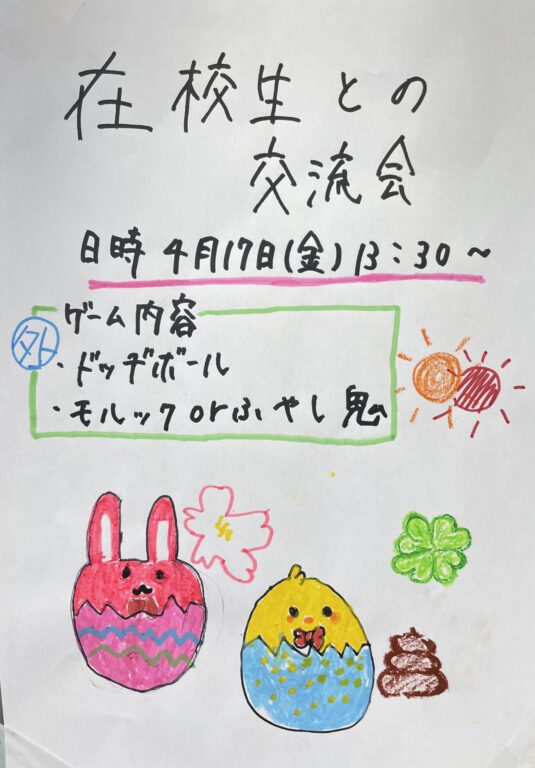 在校生との
交流会
日時 4月17日(金) 13:30~
外
ゲーム内容
・ドッヂボール
・モルックorふやし鬼